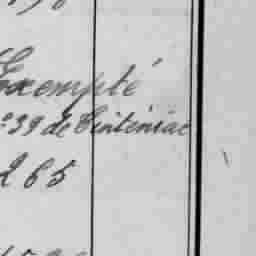 Exempté
n° 39 de Tinténiac
265